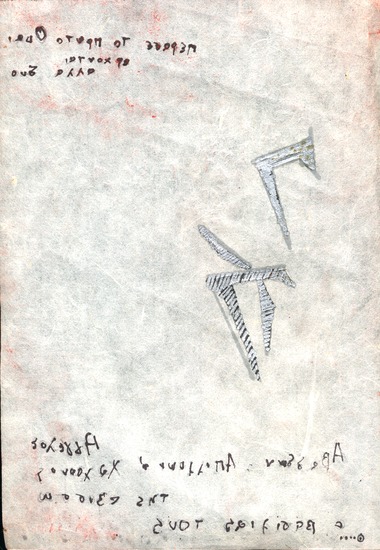 περασε το πρωτο Ουαι
ερχονται
αλλα δυο
Αγγελος
Αβαδδων : Απολλυων
της αβυσσου
ο βασιλιας τους